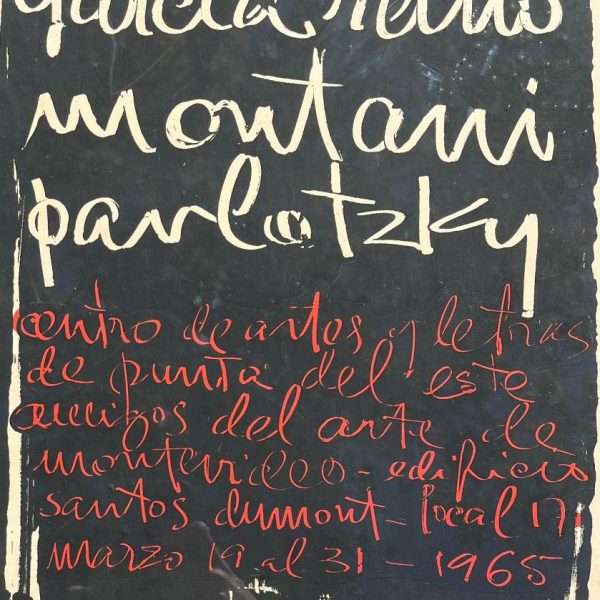 garcía reino
montani
pavlotzky
centro de artes y letras
de punta del este
amigos del arte de
montevideo - edificio
santos dumont - local 171
marzo 19 al 31 - 1965